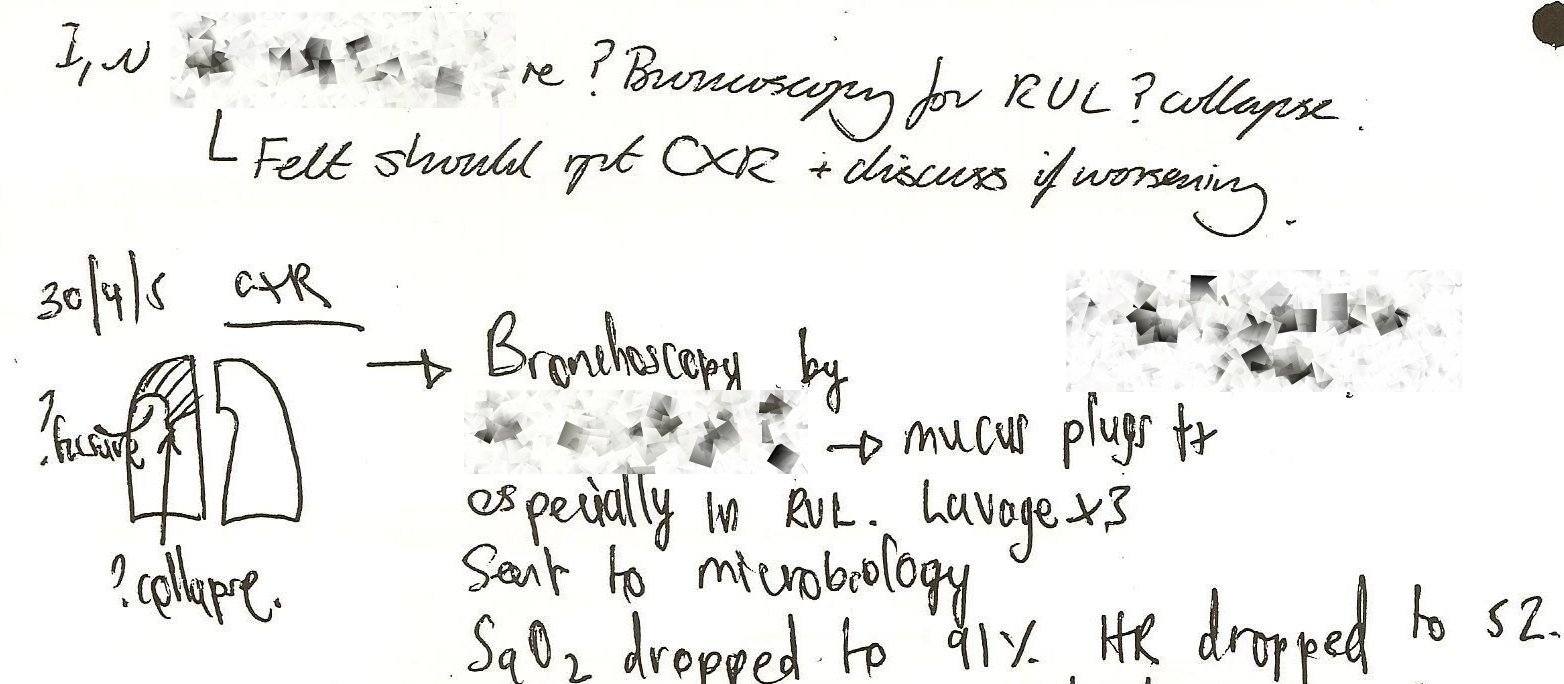 re ? Broncoscopy for RUL ? collapse.
Felt should rpt CXR + discuss if worsening.
30/4/5 CXR
→ Bronchoscopy by
? fissure
→ mucus plugs ++
especially in RUL. Lavage x3
Sent to microbiology
? collapse.
SaO2 dropped to 91%. HR dropped to 52.